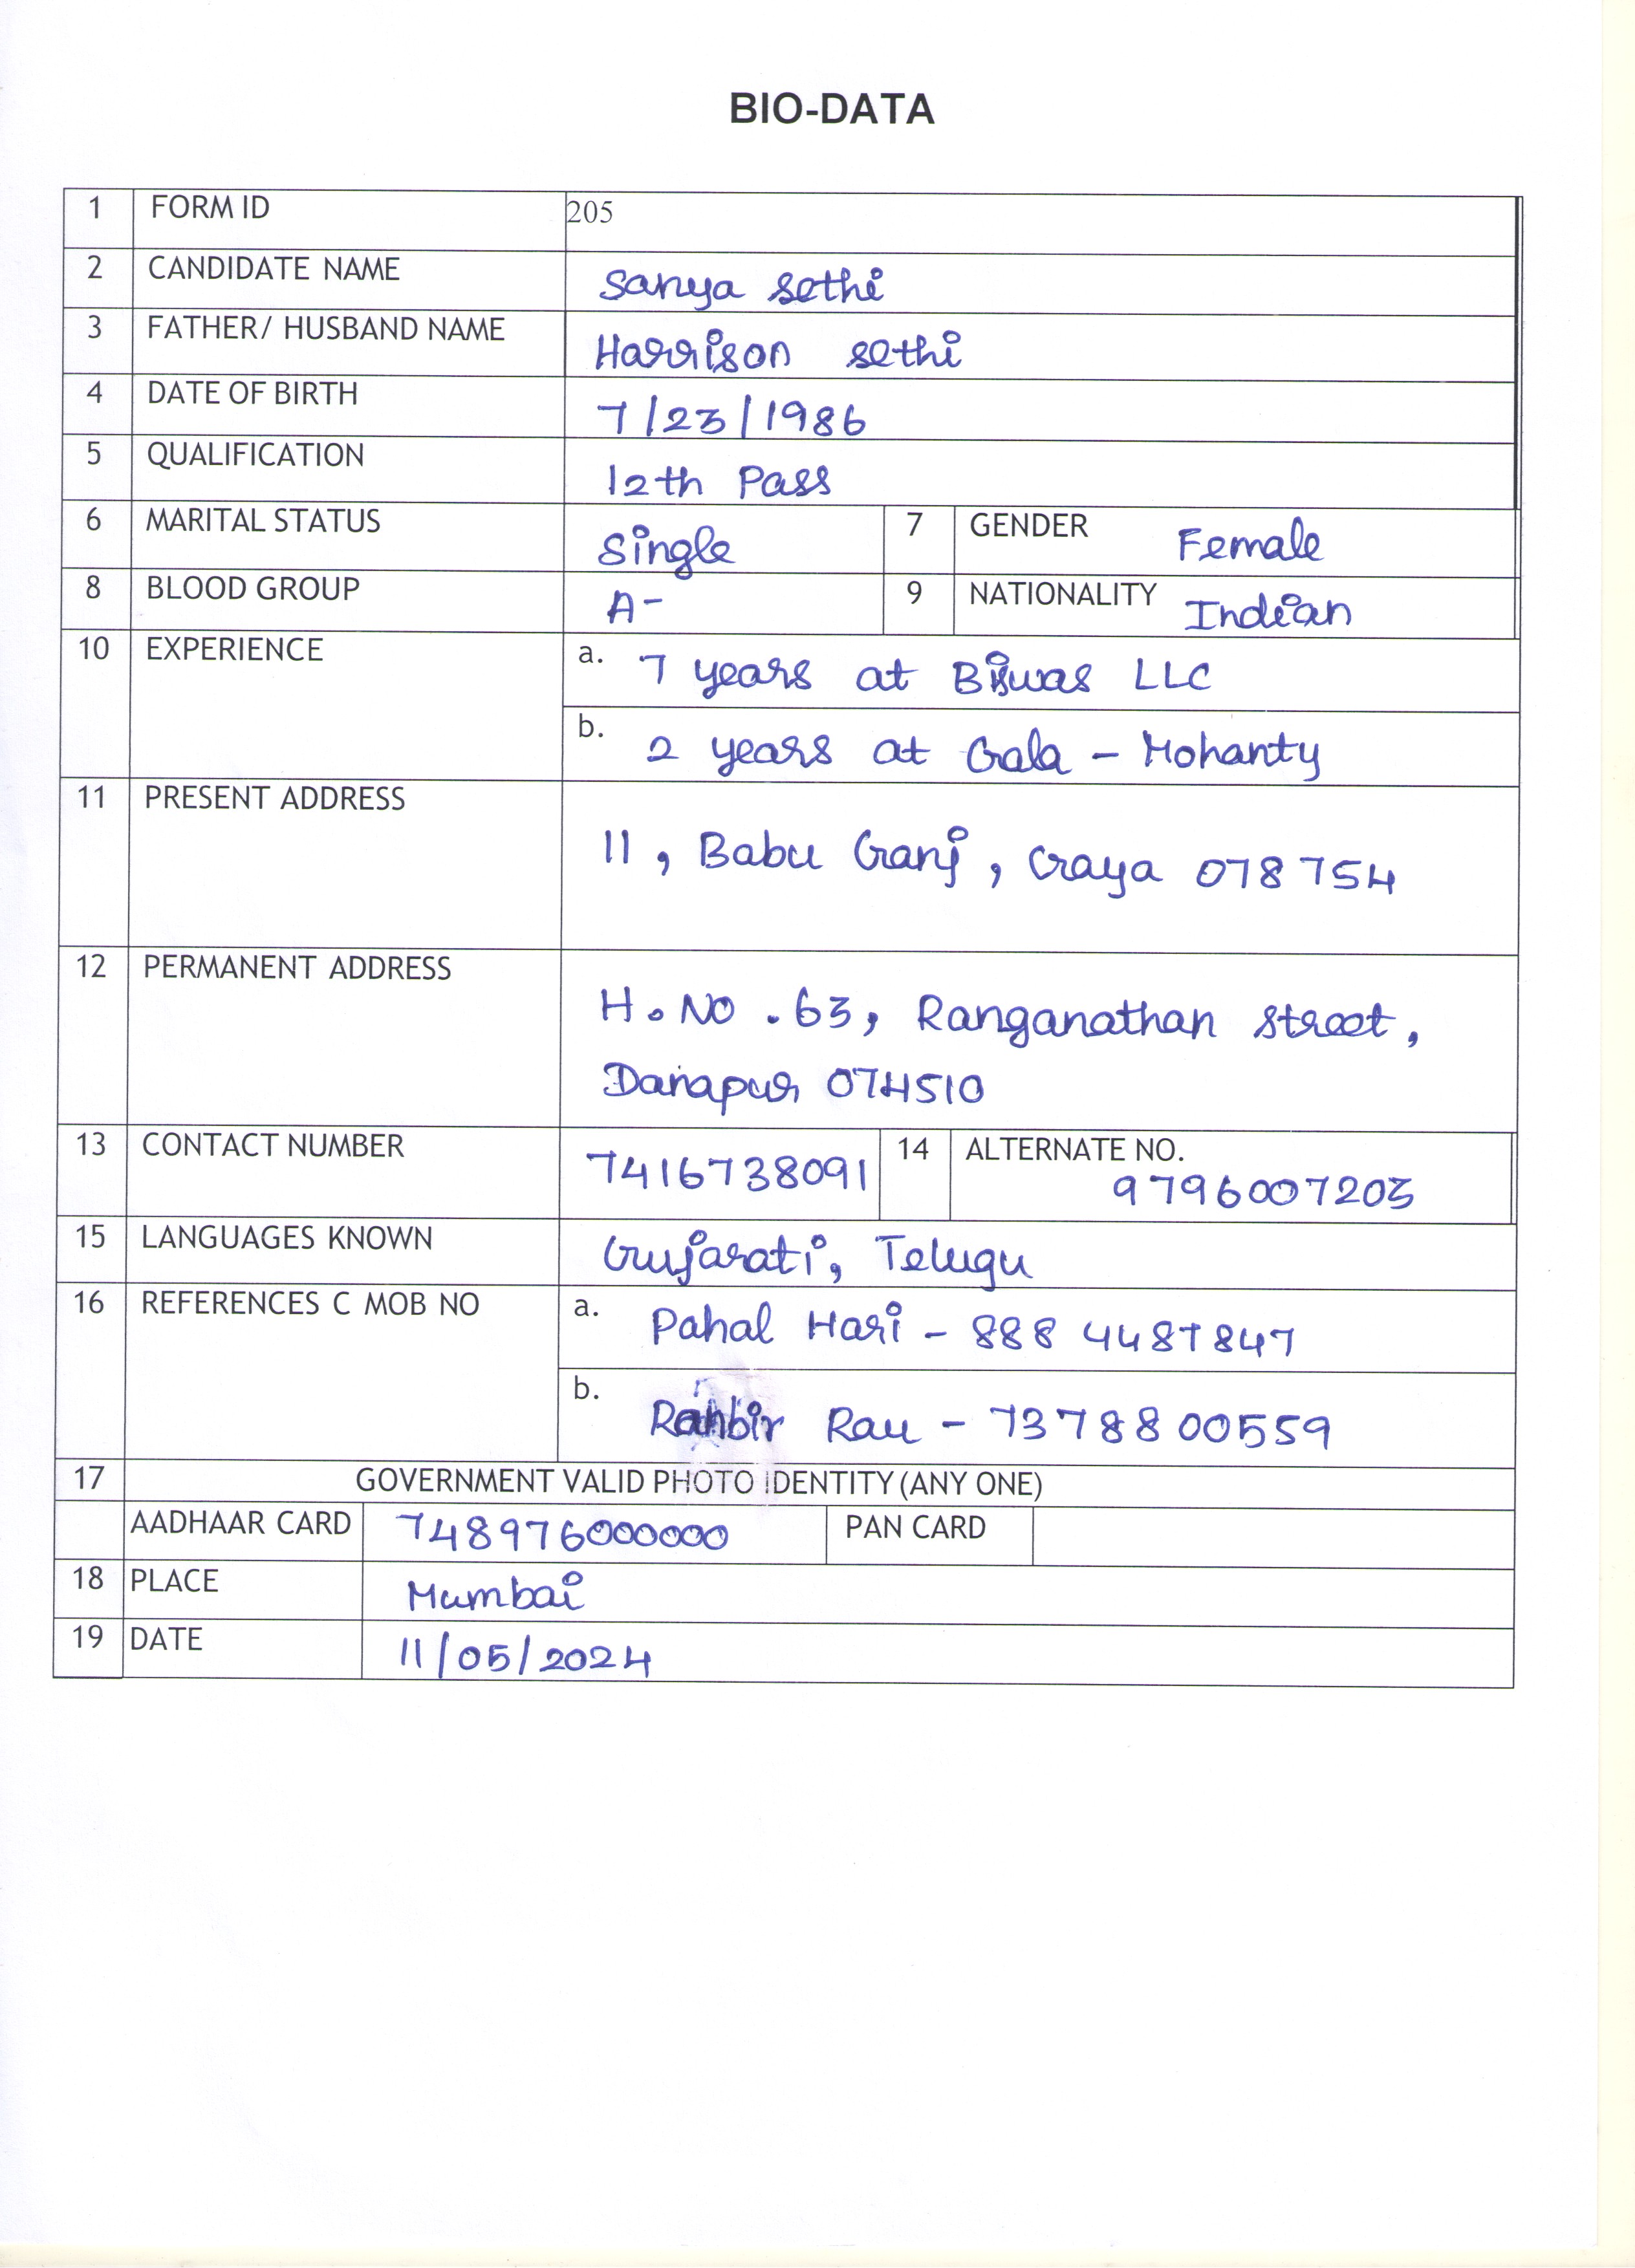 BIO-DATA
1 FORM ID 205
2 CANDIDATE NAME Sanya Sethi
3 FATHER/ HUSBAND NAME Harrison Sethi
4 DATE OF BIRTH 7/23/1986
5 QUALIFICATION 12th Pass
6 MARITAL STATUS Single 7 GENDER Female
8 BLOOD GROUP A- 9 NATIONALITY Indian
10 EXPERIENCE a. 7 years at LLC
b. 2 years at Gala - Mohanty
11 PRESENT ADDRESS 11, Babu Ganj, Gaya 078754
12 PERMANENT ADDRESS H.No.63, Ranganathan Street,
Danapur 074510
13 CONTACT NUMBER 7416738091 14 ALTERNATE NO. 9796007203
15 LANGUAGES KNOWN Gujarati, Telugu
16 REFERENCES C MOB NO a. Pahal Hari - 888 4487847
b. Rau - 7378800559
17 GOVERNMENT VALID PHOTO IDENTITY (ANY ONE)
AADHAAR CARD 748976000000 PAN CARD
18 PLACE Mumbai
19 DATE 11/05/2024